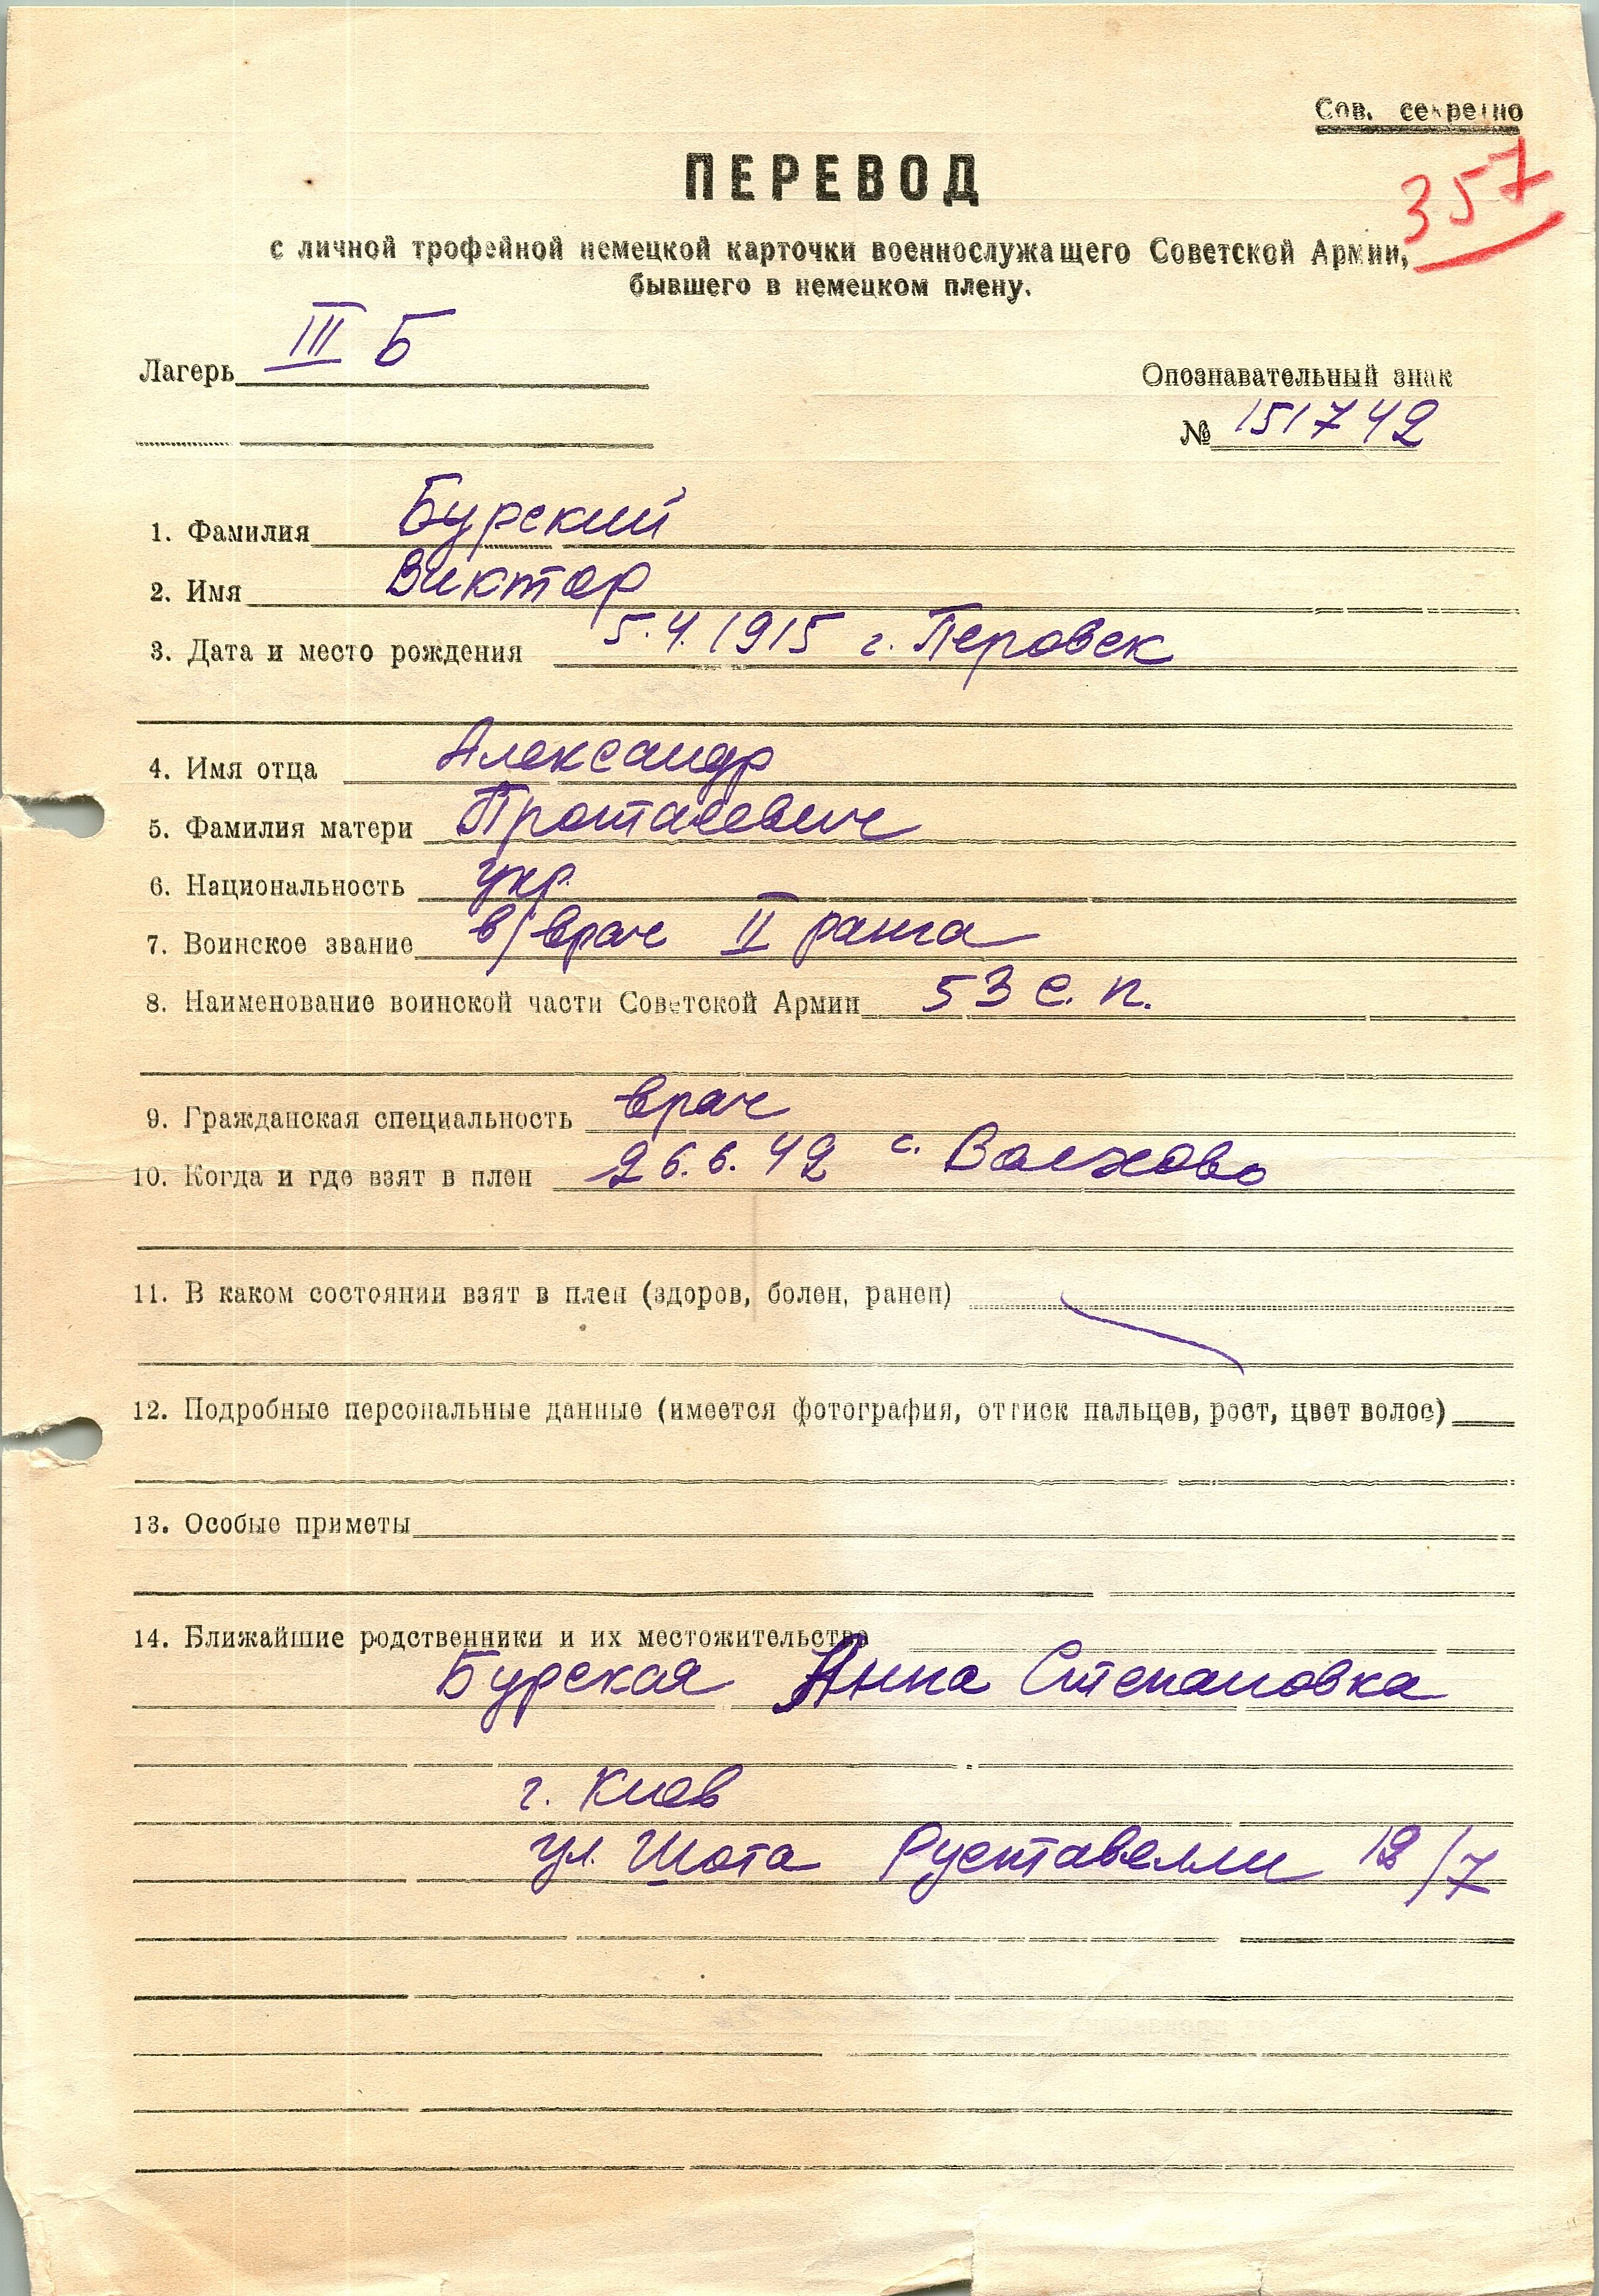 Сов. секретно
ПЕРЕВОД
357
с личной трофейной немецкой карточки военнослужащего Советской Армии,
бывшего в немецком плену.
Лагерь III Б
Опознавательный знак
№ 151742
1. Фамилия Бурский
2. Имя Виктор
3. Дата и место рождения 5.4.1915 г. Перовск
4. Имя отца Александр
5. Фамилия матери Протасевич
6. Национальность укр.
7. Воинское звание в/врач II ранга
8. Наименование воинской части Советской Армии 53 с. п.
9. Гражданская специальность врач
10. Когда и где взят в плен 26.6.42 с. Волхово
11. В каком состоянии взят в плен (здоров, болен, ранен)
12. Подробные персональные данные (имеется фотография, оттиск пальцев, рост, цвет волос)
13. Особые приметы
14. Ближайшие родственники и их местожительство
Бурская Анна Степановка
г. Киев
ул. Шота Руставелли /7